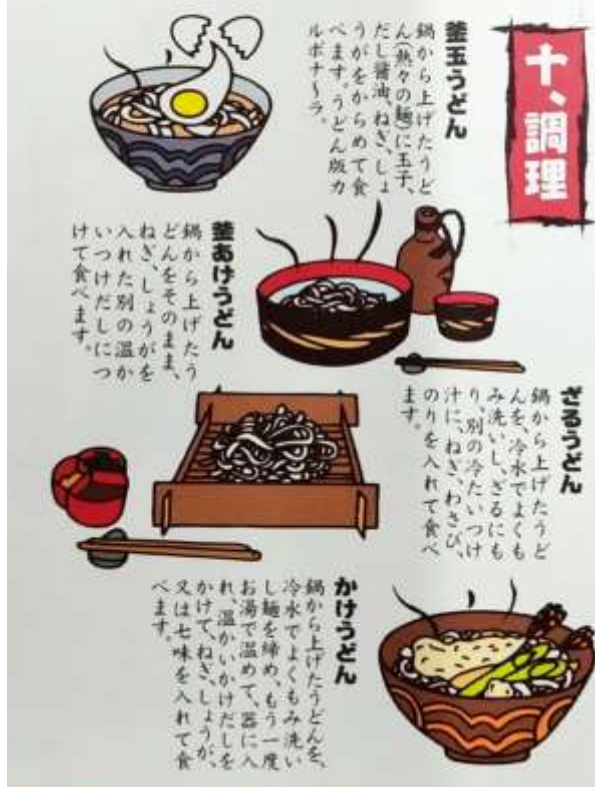 十、調理
釜玉うどん
鍋から上げたうど
ん(熱々の麺)に玉子、
だし醤油、ねぎ、しょ
うがをからめて食
べます。うどん版カ
ルボナ〜ラ。
釜あげうどん
鍋から上げたう
どんをそのまま、
ねぎ、しょうがを
入れた別の温か
いつけだしにつ
けて食べます。
ざるうどん
鍋から上げたうど
んを、冷水でよくも
み洗いし、ざるにも
り、別の冷たいつけ
汁に、ねぎ、わさび、
のりを入れて食べ
ます。
かけうどん
鍋から上げたうどんを、
冷水でよくもみ洗い
し麺を締め、もう一度
お湯で温めて、器に入
れ、温かいかけだしを
かけて、ねぎ、しょうが、
又は七味を入れて食
べます。